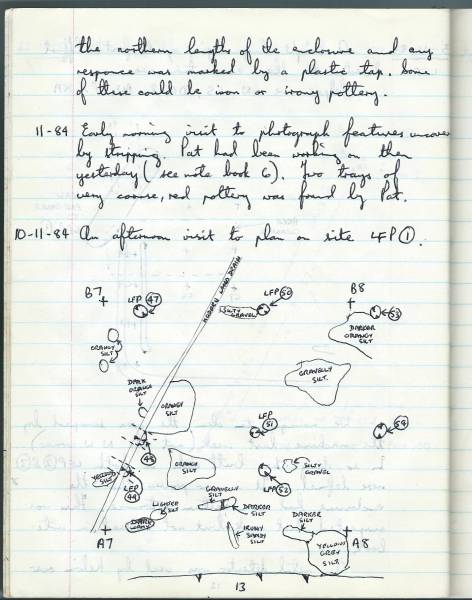 the northern lengths of the enclosure and any
response was marked by a plastic tag. Some
of these could be iron or irony pottery.
11-84 Early morning visit to photograph features uncover
by stripping. Pat had been working on them
yesterday (see note book 6). Two trays of
very coarse, red pottery was found by Pat.
10-11-84 An afternoon visit to plan on site LFP ①.
B7
LFP 47
MODERN LAND DRAIN
SILTY GRAVEL
LFP 50
B8
53
DARKER ORANGY SILT
ORANGY SILT
GRAVELLY SILT.
DARK ORANGE SILT
ORANGY SILT
LFP 51
54
45
ORANGY SILT
SILTY GRAVEL
LFP 52
LFP 44
GRAVELLY SILT
LIGHTER SILT
DARKER SILT
IRONY SANDY SILT
DARKER SILT
YELLOW GREY SILT.
A7
A8
13